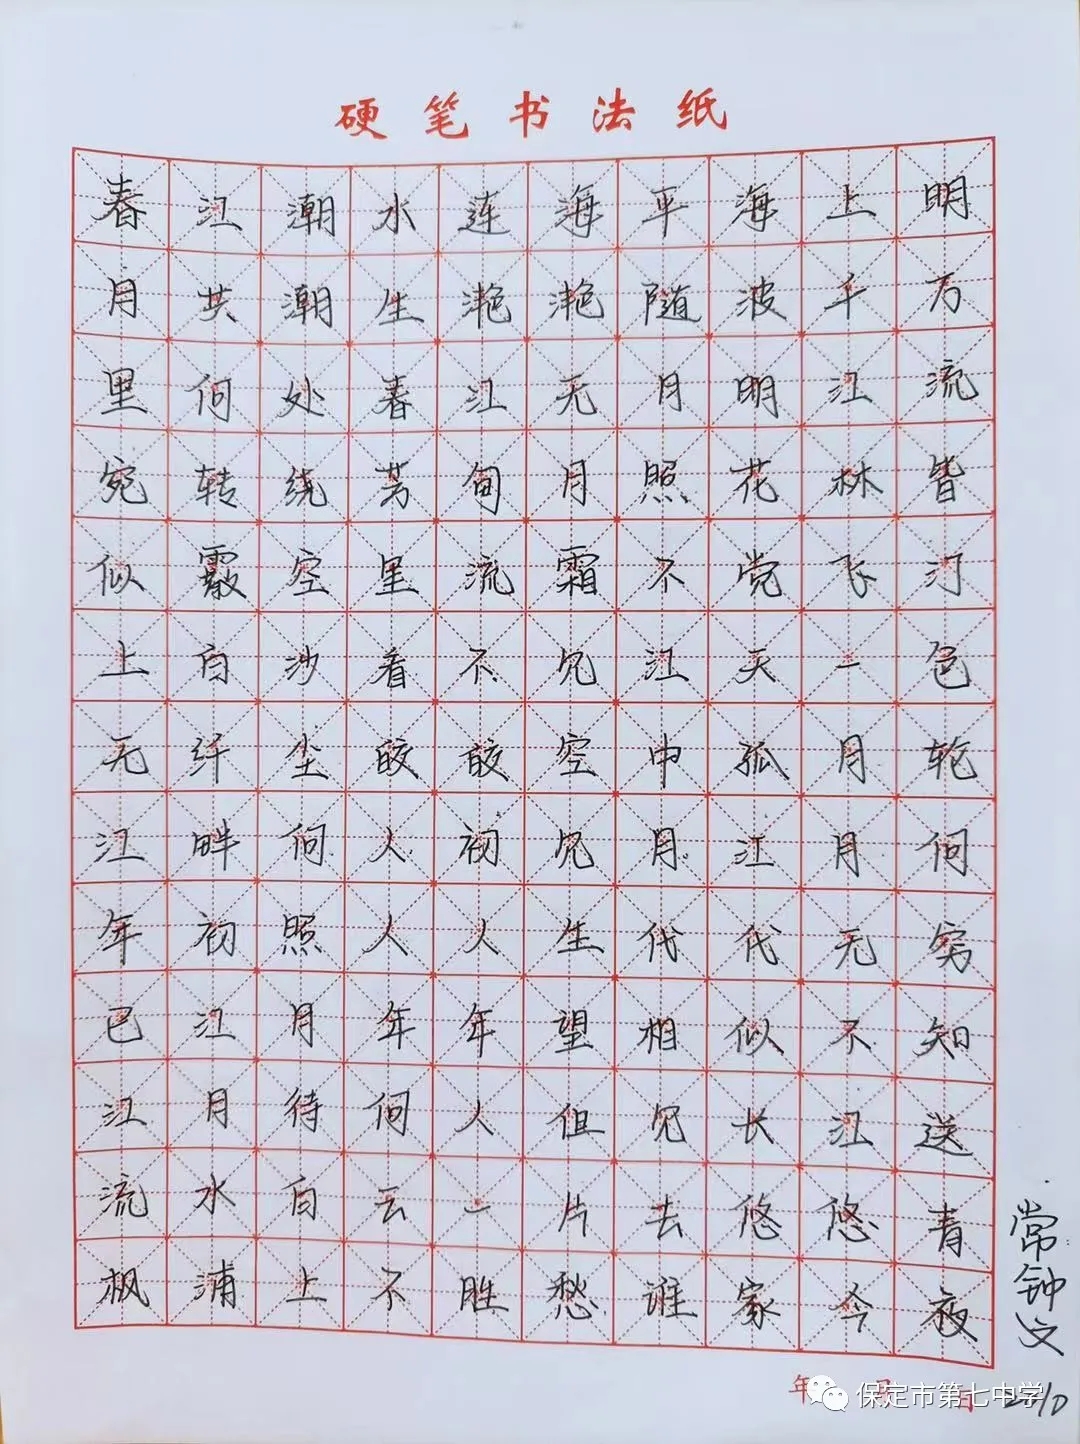 硬笔书法纸
春江潮水连海平海上明
月共潮生滟滟随波千万
里何处春江无月明江流
宛转绕芳甸月照花林皆
似霰空里流霜不觉飞汀
上白沙看不见江天一色
无纤尘皎皎空中孤月轮
江畔何人初见月江月何
年初照人人生代代无穷
已江月年年望相似不知
江月待何人但见长江送
流水白云一片去悠悠青
枫浦上不胜愁谁家今夜
常钟文
年 日
保定市第七中学